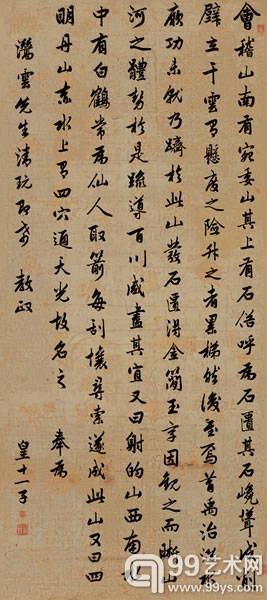 會稽山南有宛委山其上有石俗呼為石匱其石嶢聳成削
壁立干雲有懸度之險升之者累梯然後至焉昔禹治洪水
厥功未就乃躋於此山發石匱得金簡玉字因觀之而山
河之體勢於是疏導百川咸盡其宜又曰射的山西南水
中有白鶴常為仙人取箭每刮壤尋索遂成此山又曰四
明丹山赤水上有四穴通天光故名之 奉為
雲先生清玩即希 教政
皇十一子
99艺术网
99ys.com